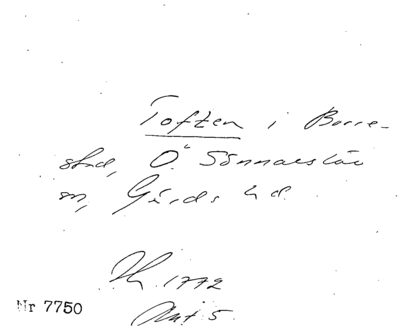 Toften i Borre-
stad, Ö. Sönnarslöv
sn, Gärds hd.
1772
Akt 5.
Nr 7750